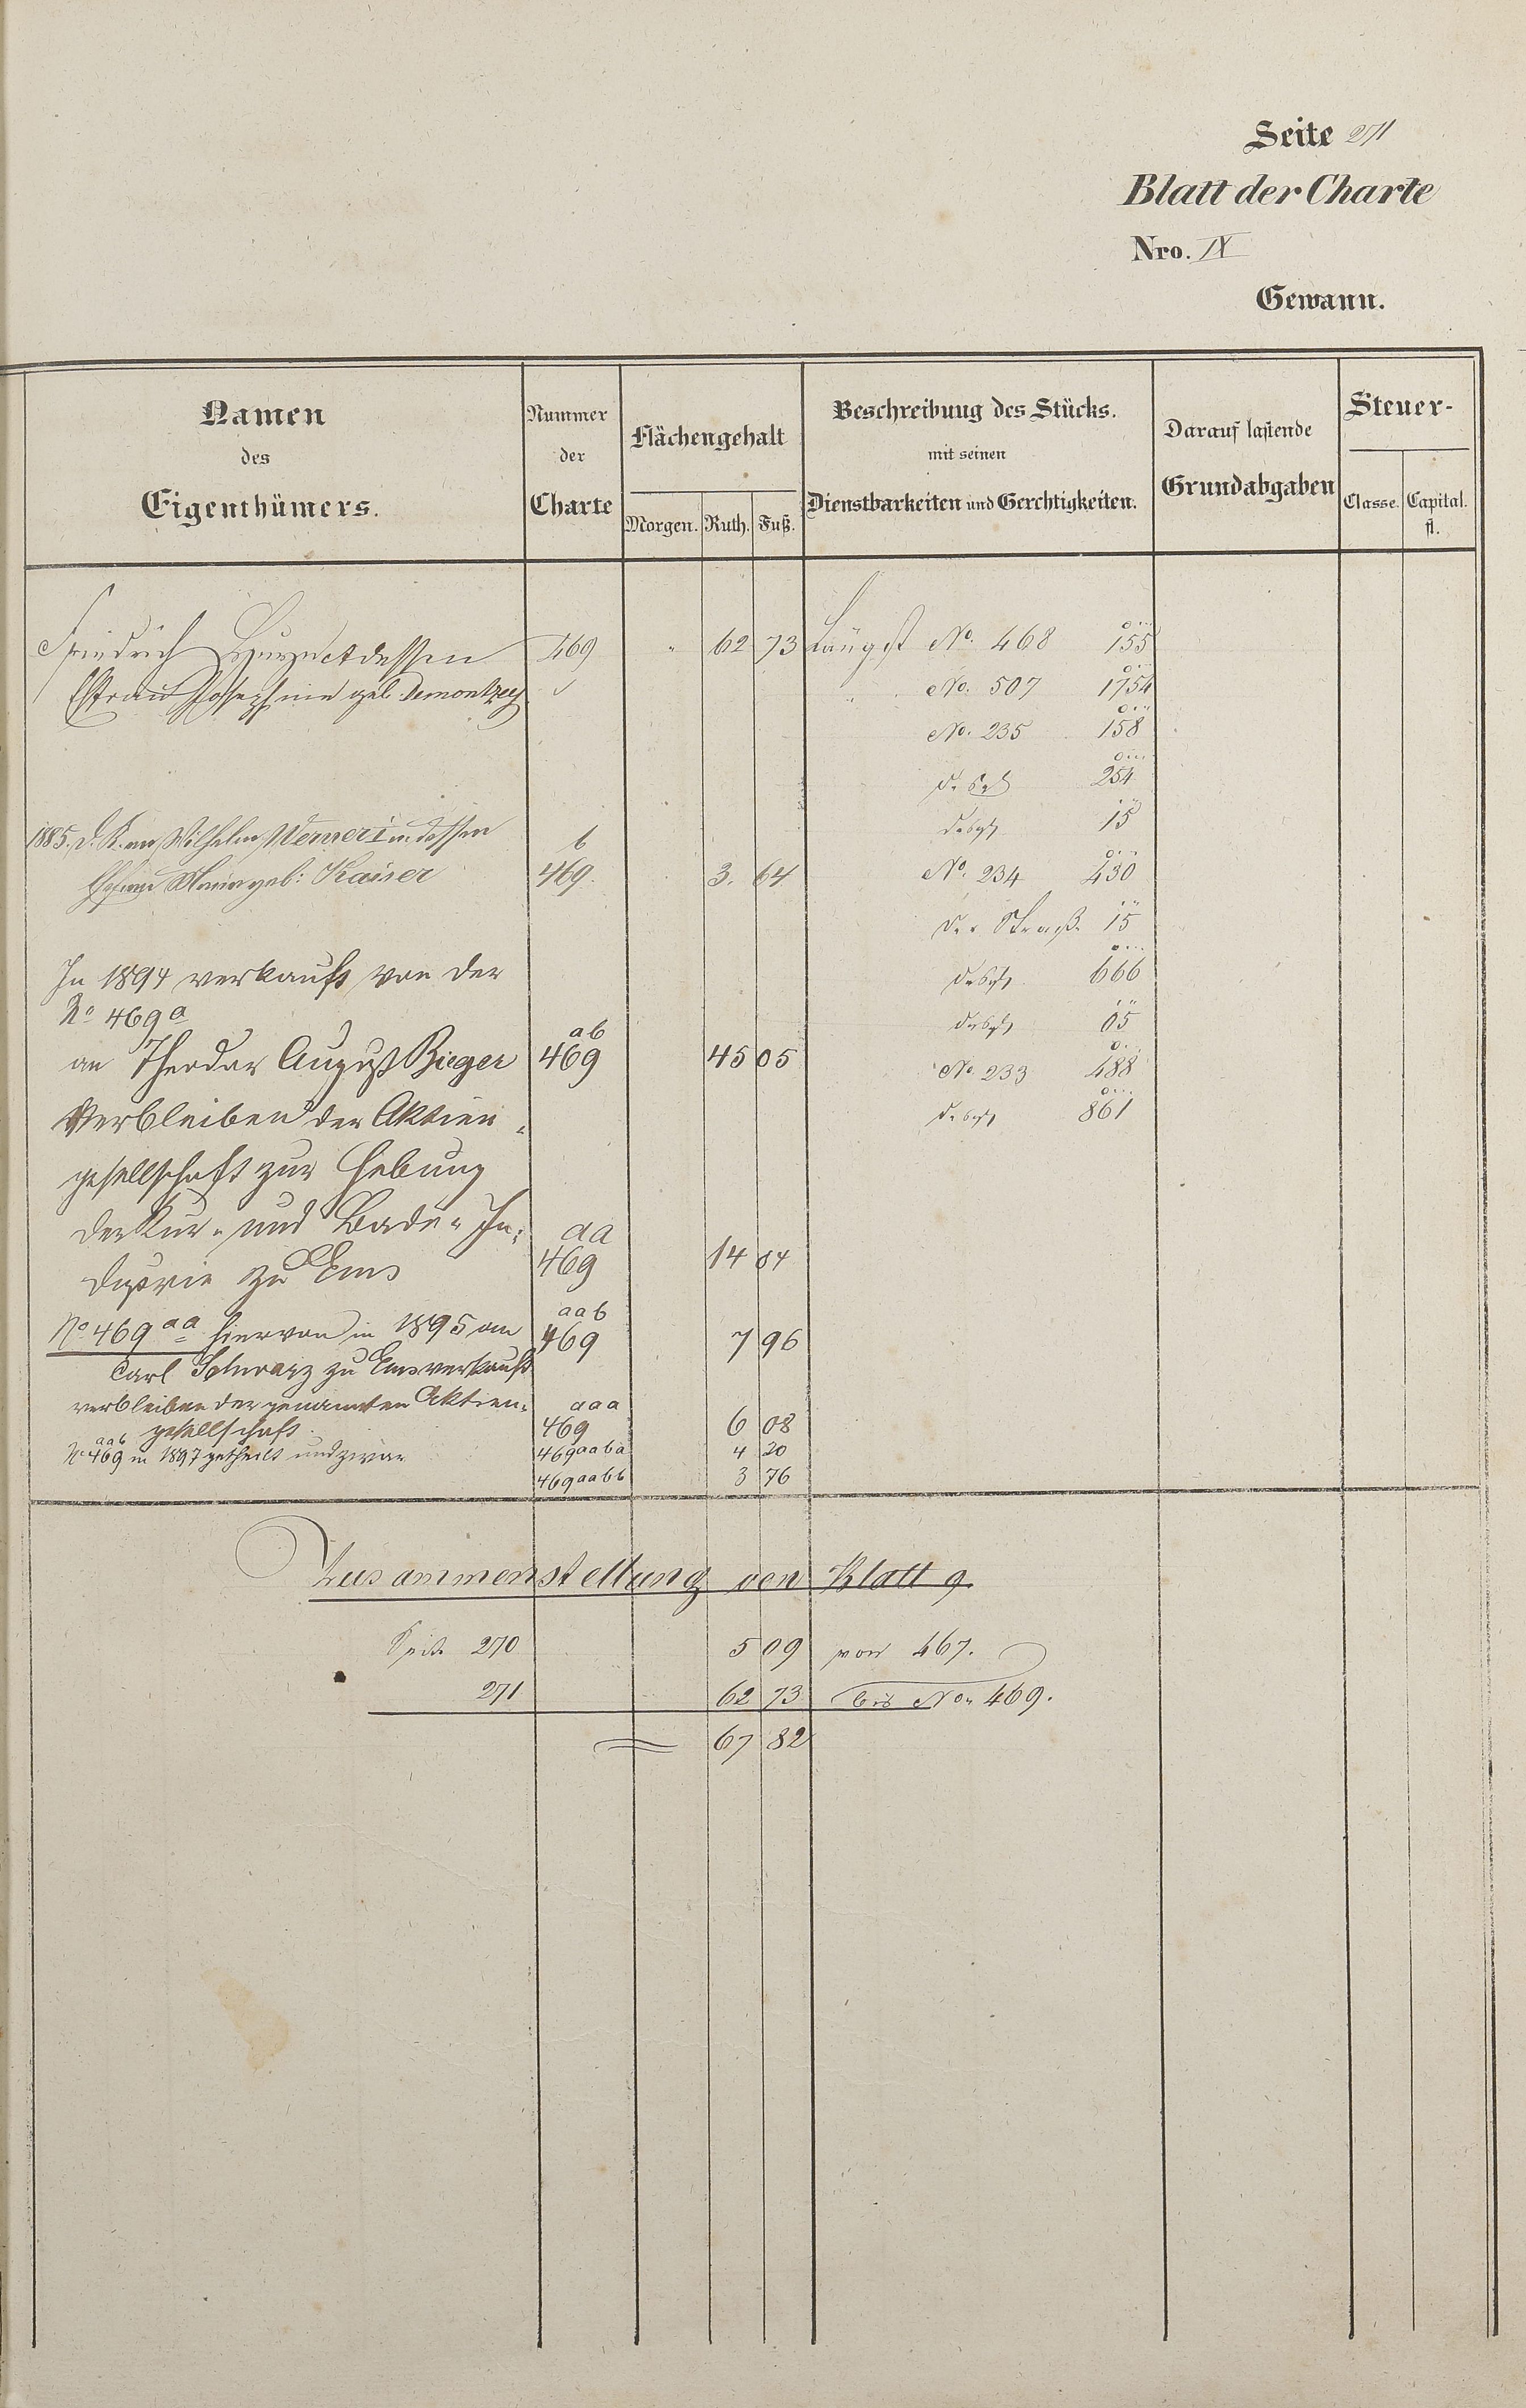 Seite 271
Blatt der Charte
Nro. IX
Gewann.
Namen
des
Eigenthümers.
Nummer
der
Charte
Flächengehalt
Morgen. Ruth. Fuß.
Beschreibung des Stücks.
mit seinen
Dienstbarkeiten und Gerechtigkeiten.
Darauf lastende
Grundabgaben
Steuer-
Classe. Capital.
fl.
Friedrich dessen 469 " 62 73 Längst No. 468 155
Ehfrau Josephine geb. No. 507 1754
No. 235 158
desgl 254
1885. d. K. an Wilhelm Werner I u. dessen b desgl 15
Ehefrau Maria geb: Kaiser 469. 3. 64 No. 234 430
der Straße 15
In 1894 verkauft von der desgl 666
No 469 a desgl 05
an Theodor August Bieger ab 469 45 05 No. 233 488
Verbleiben der Aktien- desgl 861
gesellschaft zur Hebung
der Kur- und Bade-In-
dustrie zu Ems aa 469 14 04
No 469 aa hiervon in 1895 an aab 469 7 96
Carl Schwarz zu Ems verkauft
verbleiben der genannten Aktien- aaa
gesellschaft 469 6 08
No 469 aab in 1897 getheilt und zwar 469 aaba 4 20
469 aabb 3 76
Zusammenstellung von Blatt 9.
Seite 270 5 09 von 467.
271 62 73 bis No. 469.
67 82